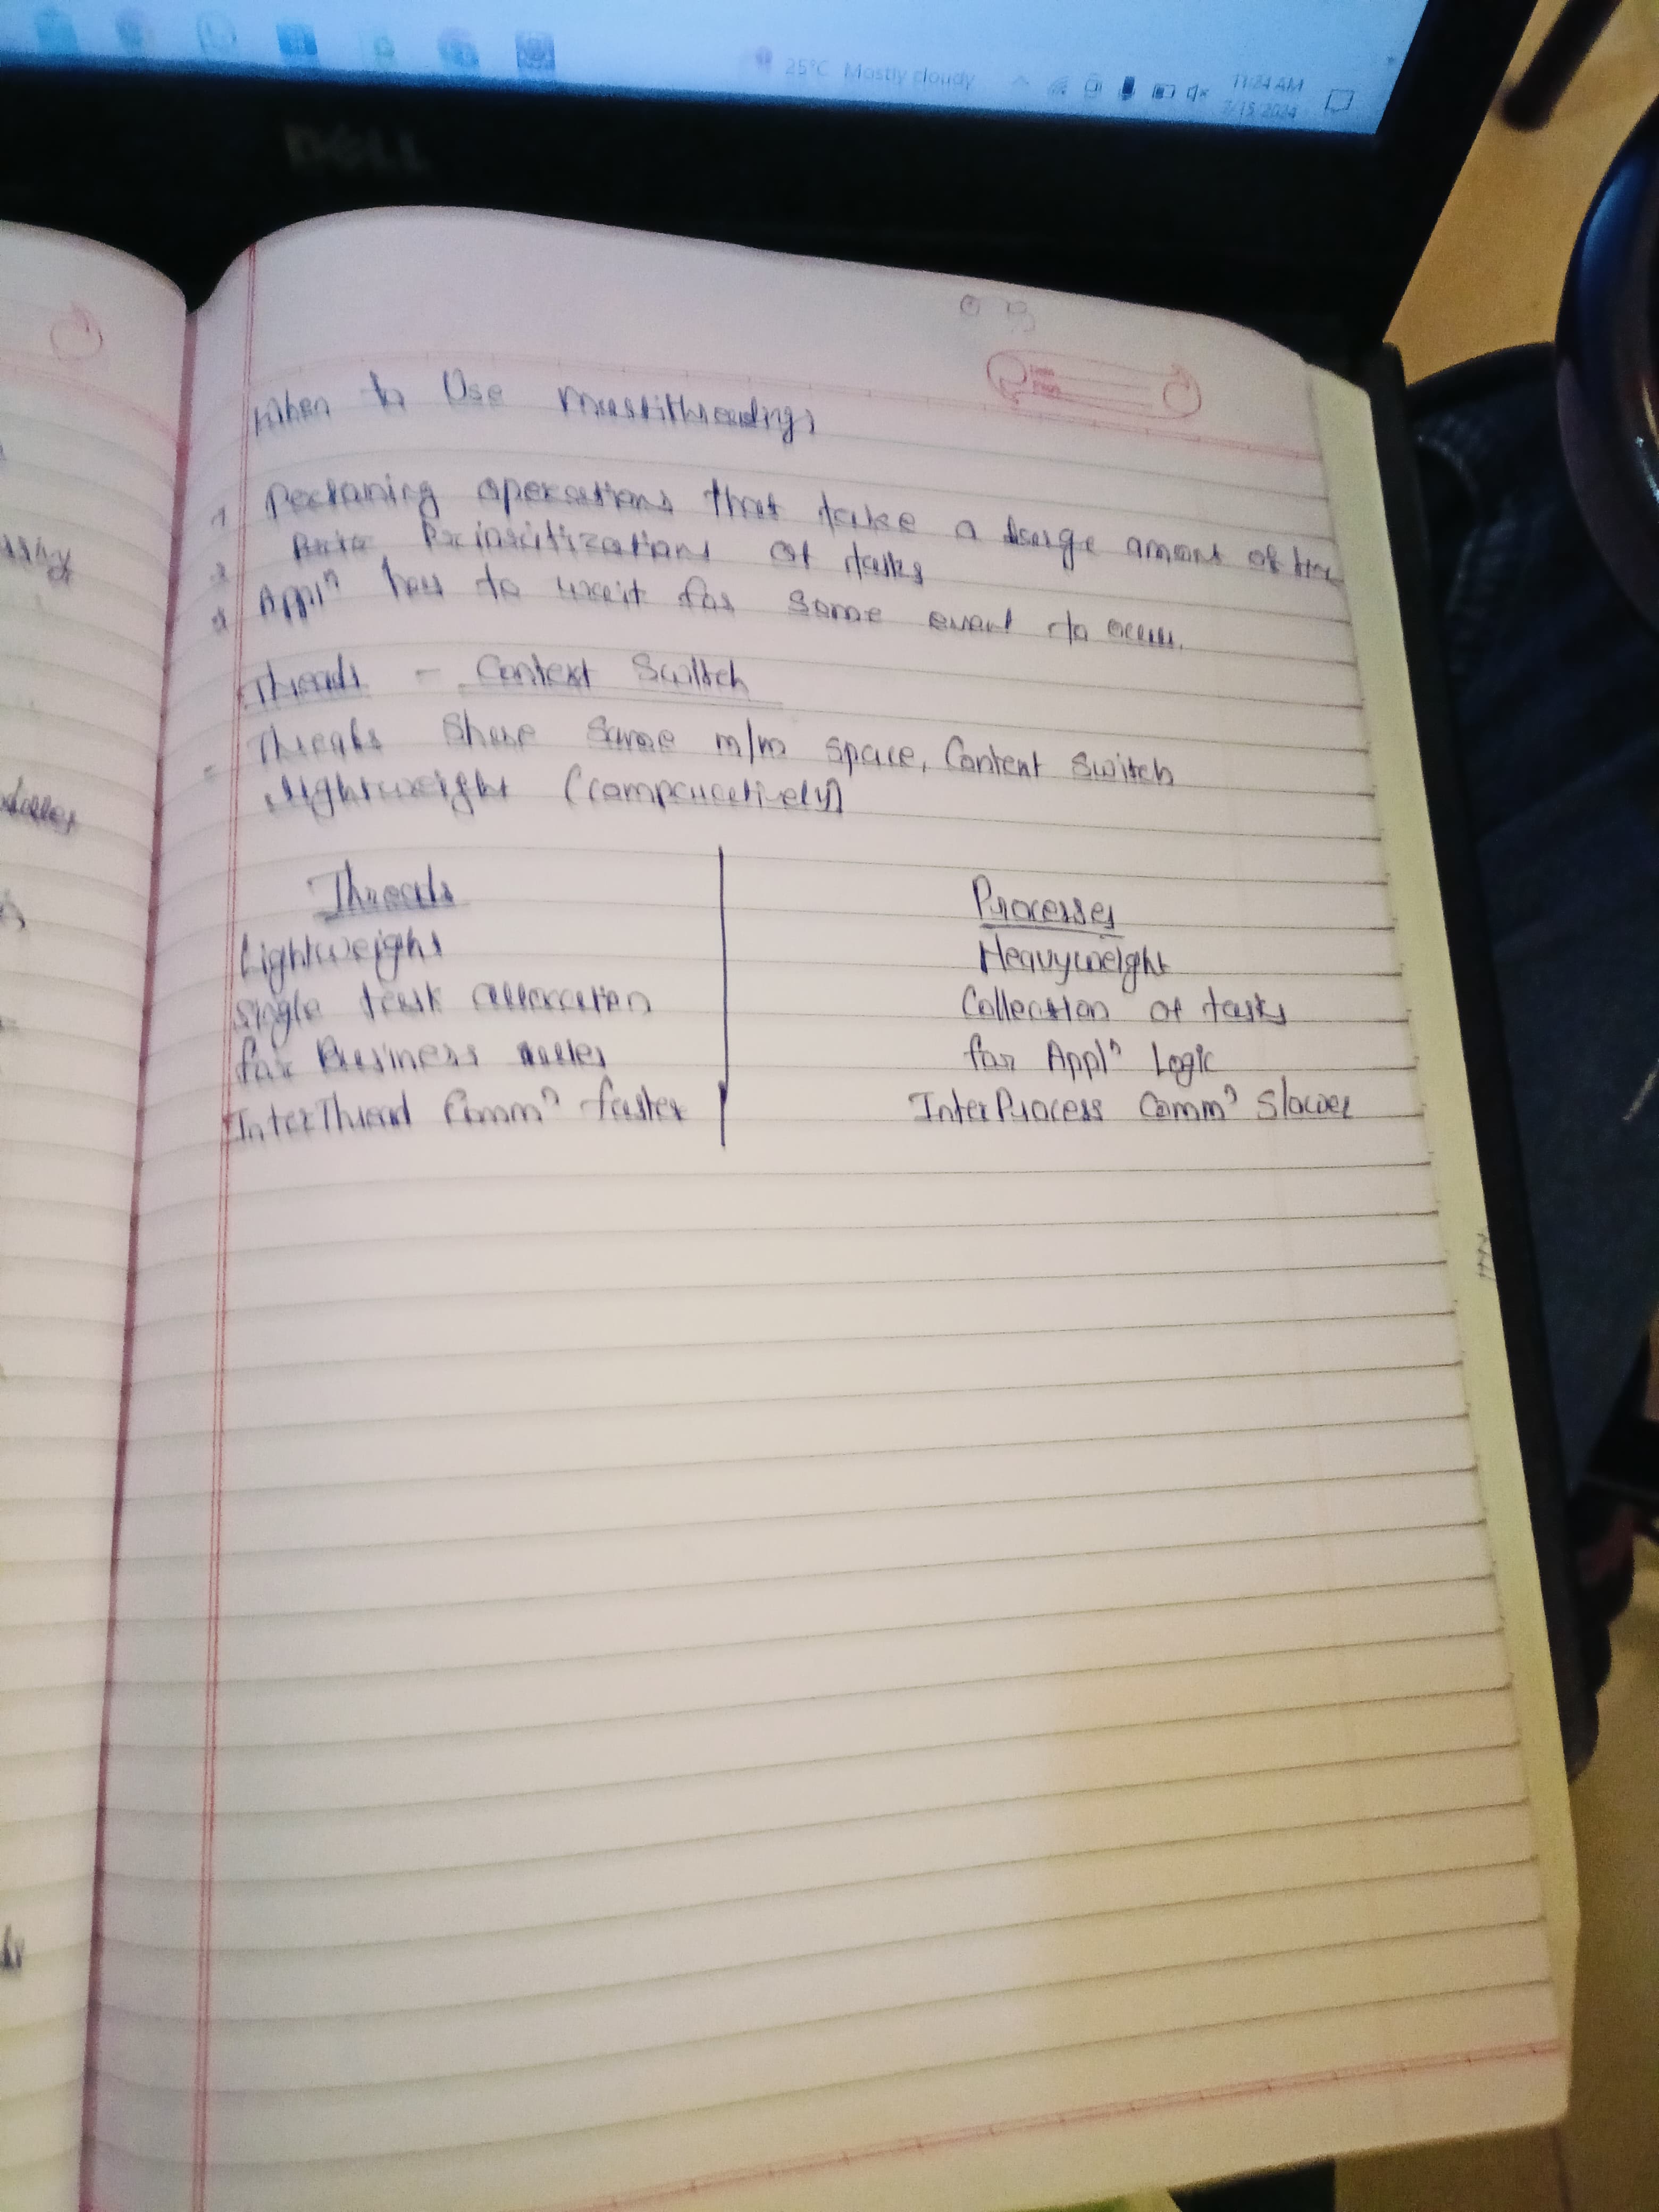 25°C Mostly cloudy
11:24 AM
7/15/2024
DELL
When to Use Multithreading,
1 Performing operations that take a large amont of time
2 Prioritizations of tasks
3 Appln has to wait for some event to occur.
Threads - Context Switch
- Threads Share same m/m space, Context Switch
Lightweight (comparatively)
Threads
Processes
Lightweight
Heavyweight
Single task allocation
Collection of tasks
for Business rules
for Appln Logic
InterThread Commn faster
InterProcess Commn Slower